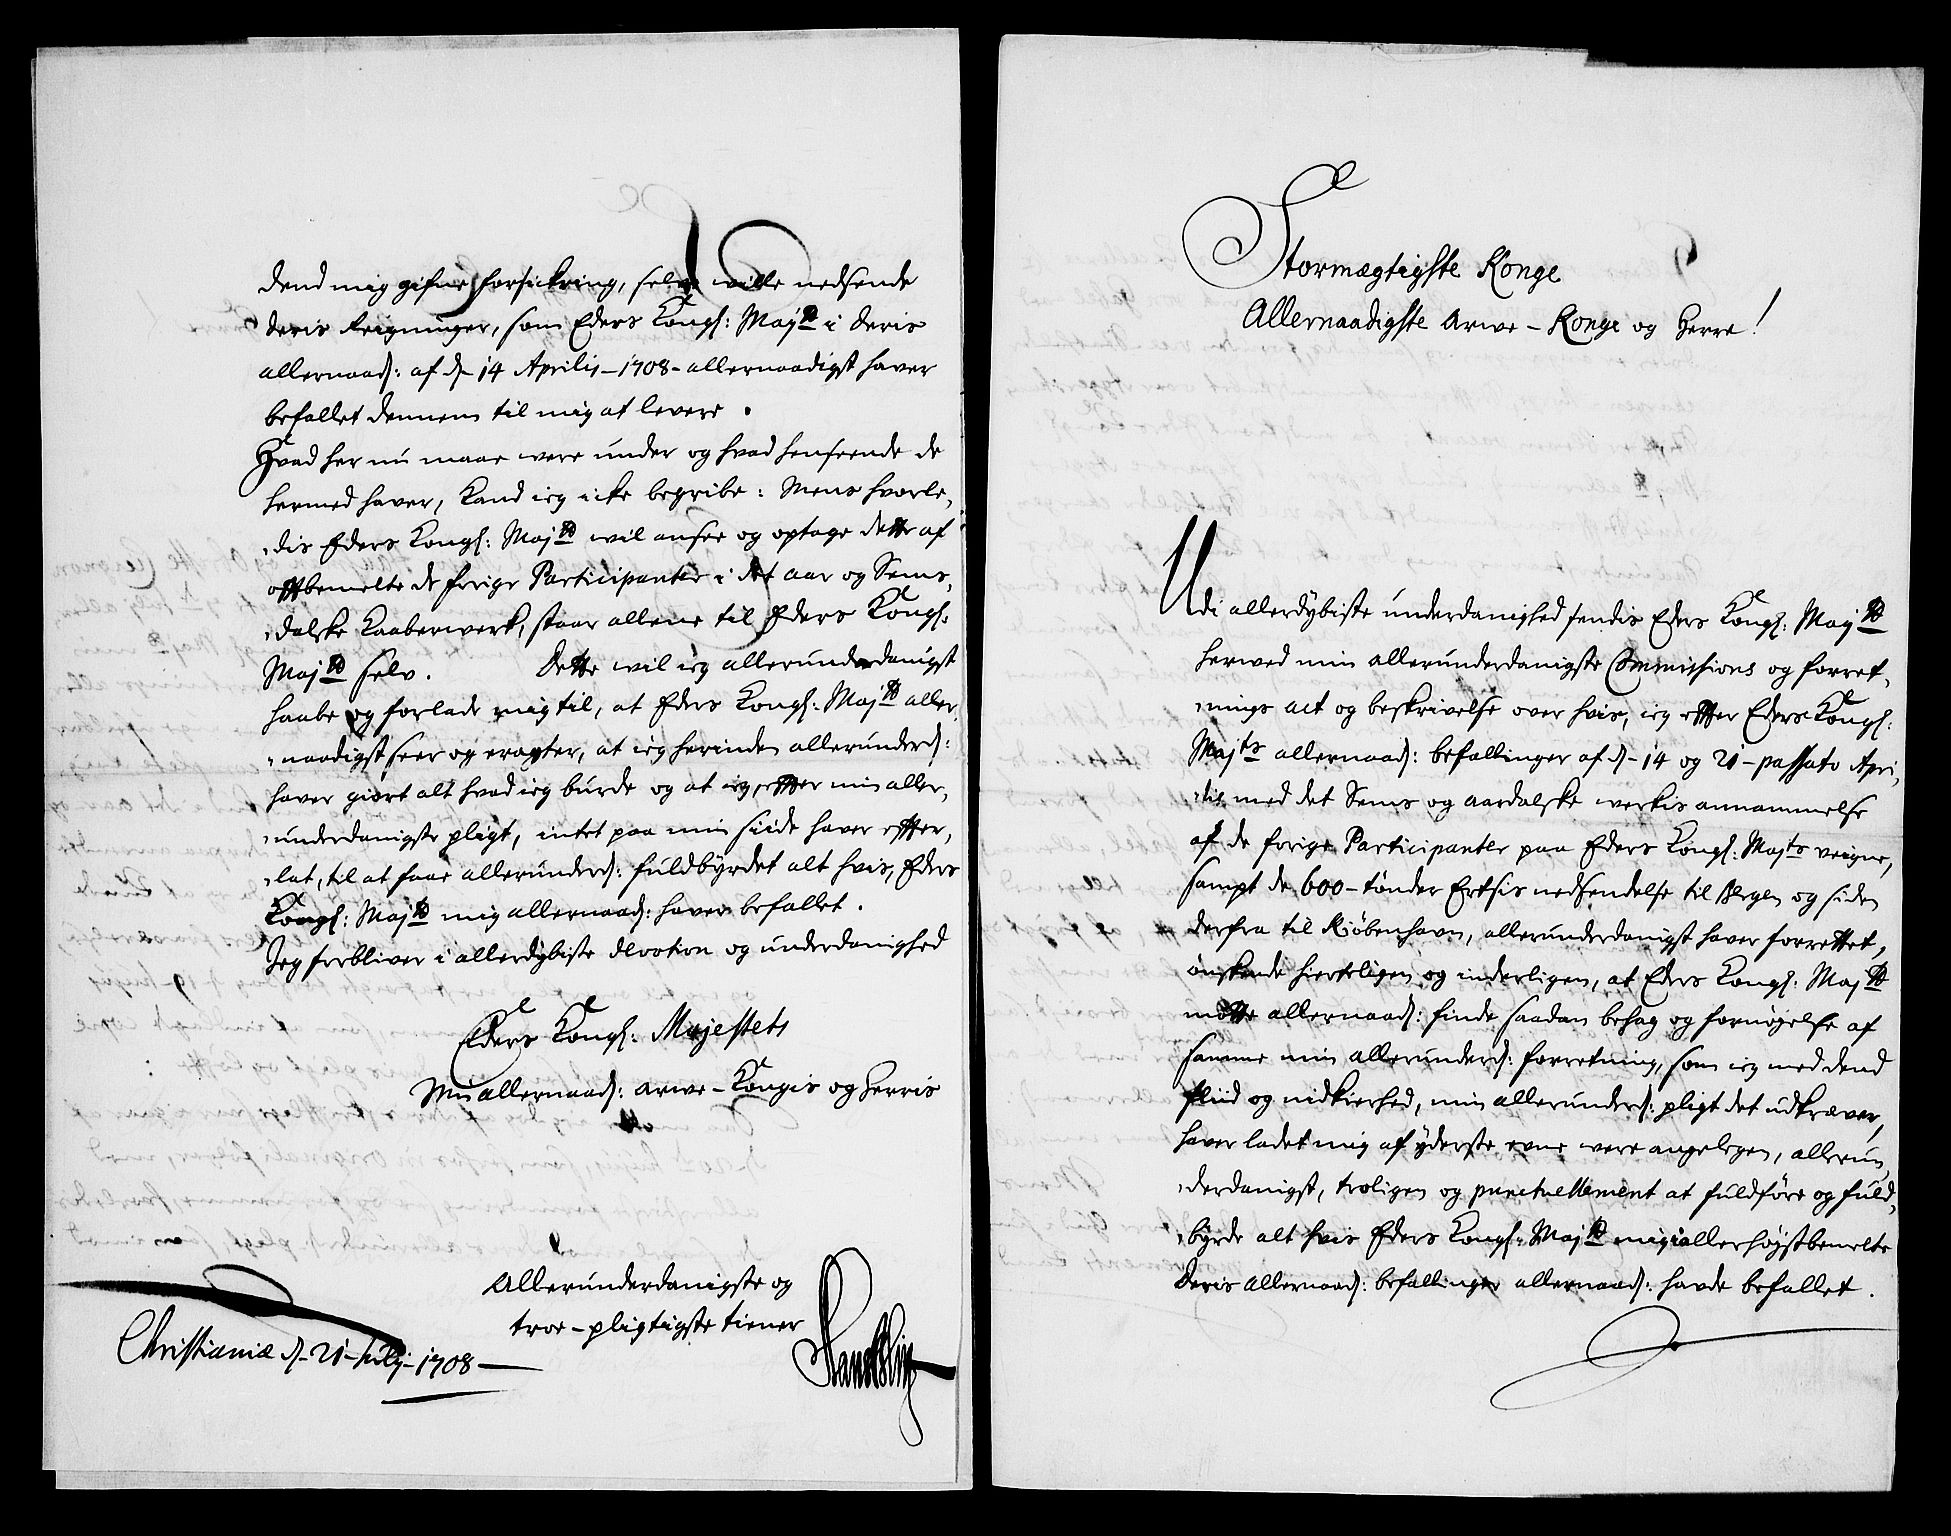 dend mig gifne forsickring, selv wille nedsende
deris Reigninger, som Eders Kongl: Majts i deris
allernaad: af d. 14 Aprilis - 1708 - allernaadigst haver
befallet dennem til mig at levere.
Hvad her nu maae were under og hvad henseende de
hermed haver, kand ieg icke begribe: Mens hvorle,
,dis Eders Kongl: Majts wil ansee og optage dette af
offtbemelte de forige Participanter i det aar og Sems,
,dalske Kaaberwerk, staar allene til Eders Kongl:
Majts selv. Dette wil ieg allerunderdanigst
haabe og forlade mig til, at Eders Kongl: Majts aller,
,naadigst seer og eragter, at ieg herinden allerunderd:
haver giort alt hvad ieg burde og at ieg, effter min aller,
,underdanigste pligt, intet paa min siide haver effter,
,lat, til at faae allerunderd: fuldbyrdet alt hvis, Eders
Kongl: Majts mig allernaad: haver befallet.
Jeg forbliver i allerdybiste devotion og underdanighed
Eders Kongl: Majestets
Min allernaad: arwe-Kongis og Herris
Allerunderdanigste og
troe-pligtigste tiener
Christianiæ d. 21 - July - 1708 -
Stormægtigste Konge
Allernaadigste Arwe-Konge og Herre!
Udi allerdybiste underdanighed sendis Eders Kongl: Majts
herwed min allerunderdanigste Commissions og forret,
,nings act og beskrivelse over hvis, ieg effter Eders Kongl:
Majts allernaad: befallinger af d. 14 og 21 - passato Apri,
,lis med det Sems og aardalske werkis annammelse
af de forige Participanter paa Eders Kongl: Majts veigne,
sampt de 600 - tønder Ertsis nedsendelse til Bergen og siden
derfra til Kiöbenhavn, allerunderdanigst haver forrettet,
ønskende hierteligen og inderligen, at Eders Kongl: Majts
motte allernaad: finde saadan behag og fornøjelse af
samme min allerunderd: forretning, som ieg med dend
fliid og nidkierhed, min allerunderd: pligt det udkræver,
haver ladet mig af yderste evne were angelegen, allerun,
,derdanigst, troligen og punctuellement at fuldføre og fuld,
,byrde alt hvis Eders Kongl: Majts mig i allerhøystbemelte
Deris allernaad: befallinger allernaad: havde befallet.